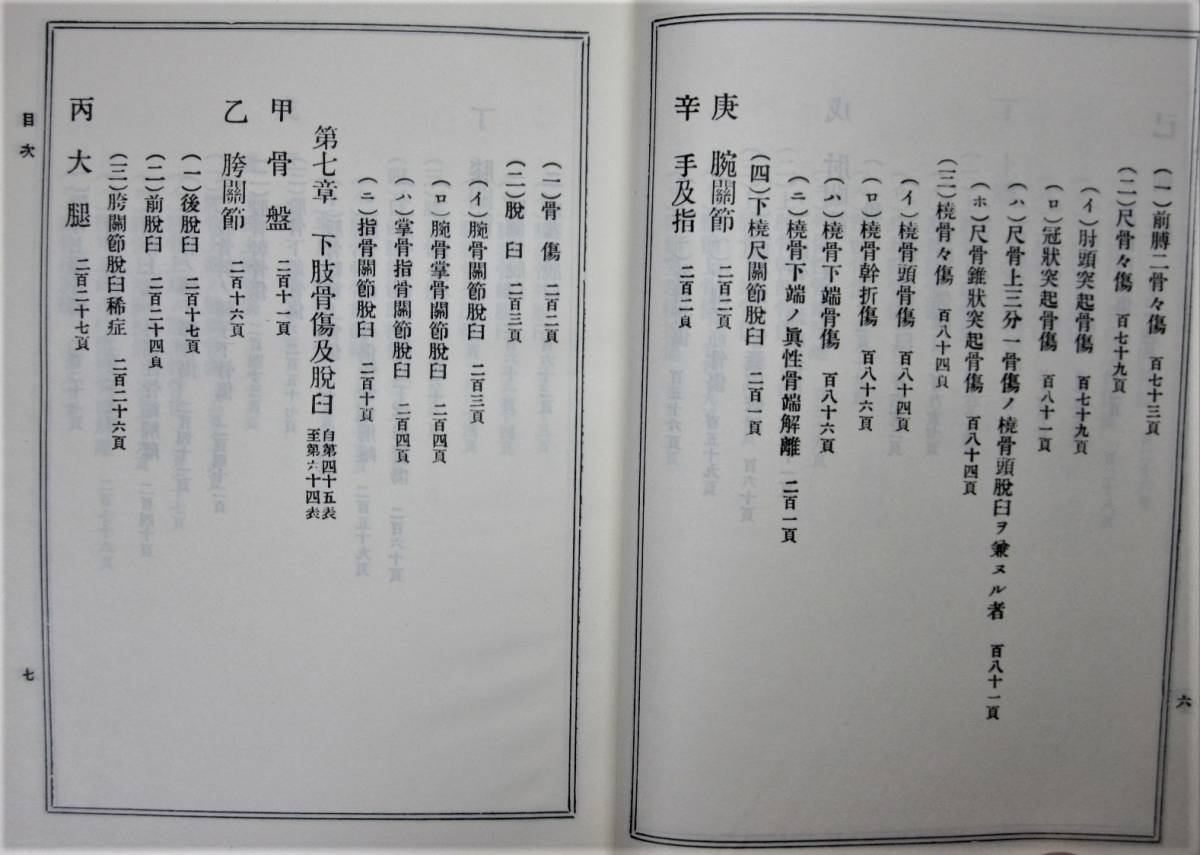 (一)前膊二骨々傷 百七十三頁
(二)尺骨々傷 百七十九頁
(イ)肘頭突起骨傷 百七十九頁
(ロ)冠狀突起骨傷 百八十一頁
(ハ)尺骨上三分一骨傷ノ橈骨頭脫臼ヲ兼ヌル者 百八十一頁
(ホ)尺骨錐狀突起骨傷 百八十四頁
(三)橈骨々傷 百八十四頁
(イ)橈骨頭骨傷 百八十四頁
(ロ)橈骨幹折傷 百八十六頁
(ハ)橈骨下端骨傷 百八十六頁
(ニ)橈骨下端ノ眞性骨端解離 二百一頁
(四)下橈尺關節脫臼 二百一頁
庚 腕關節 二百二頁
辛 手及指 二百二頁
六
(一)骨傷 二百二頁
(二)脫臼 二百三頁
(イ)腕骨關節脫臼 二百三頁
(ロ)腕骨掌骨關節脫臼 二百四頁
(ハ)掌骨指骨關節脫臼 二百四頁
(ニ)指骨關節脫臼 二百十頁
第七章 下肢骨傷及脫臼 自第四十五表至第六十四表
甲 骨盤 二百十一頁
乙 胯關節 二百十六頁
(一)後脫臼 二百十七頁
(二)前脫臼 二百二十四頁
(三)胯關節脫臼稀症 二百二十六頁
丙 大腿 二百二十七頁
目次
七